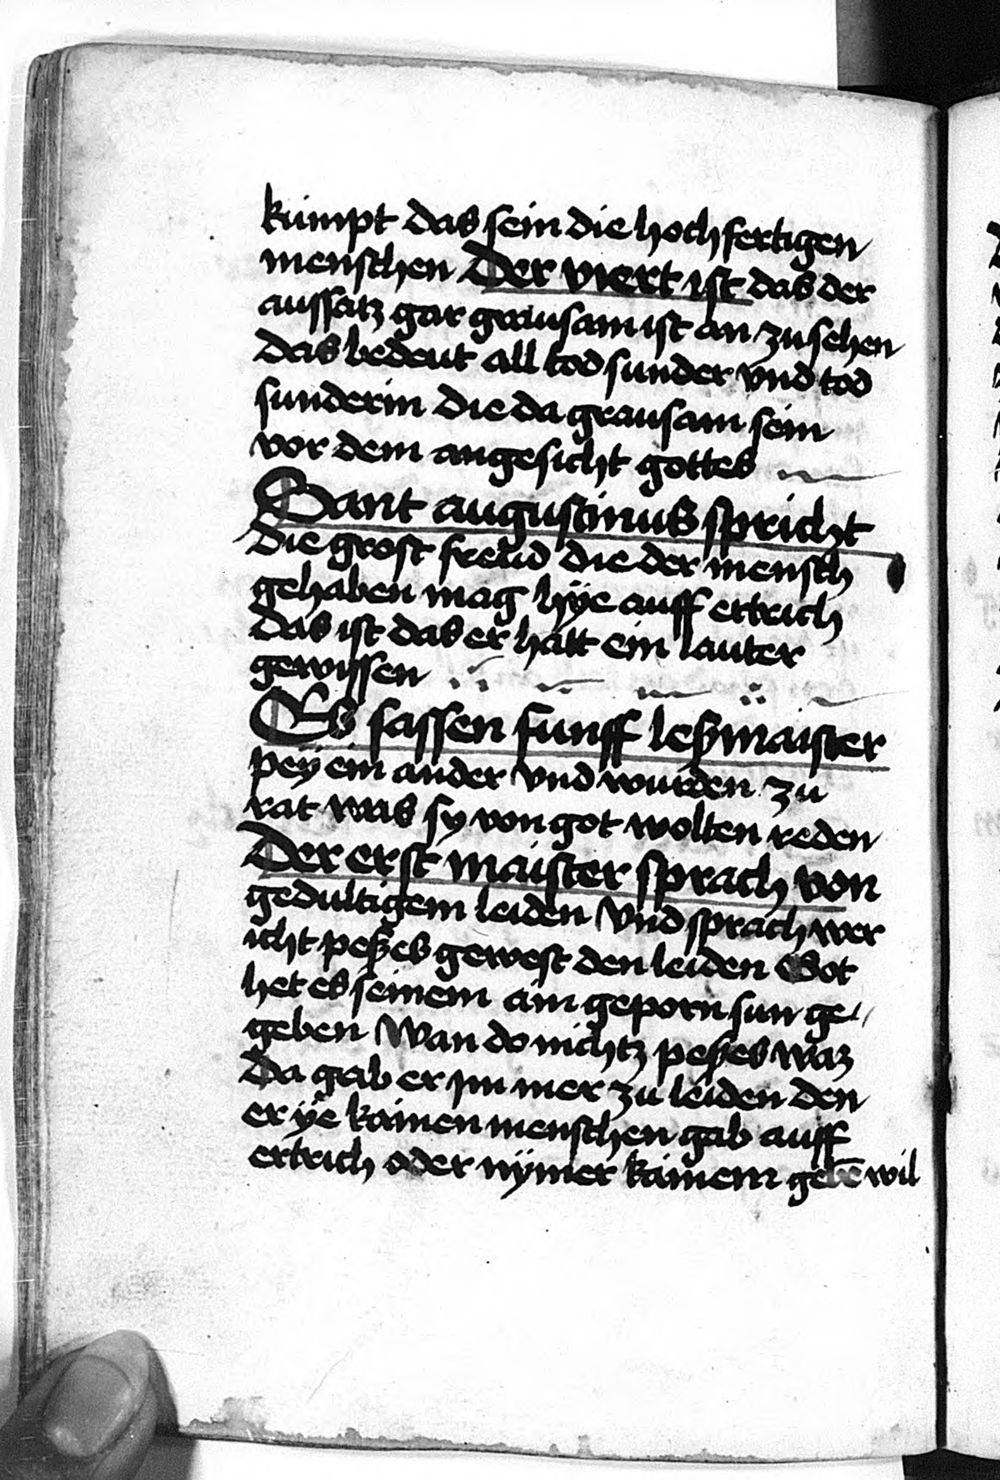 kumpt das sein die hochfertigen
menschen Der viert ist das der
aussatz gar grausam ist an zu sehen
das bedeut all tod sunder vnd tod
sunderin die da grausam sein
vor dem angesicht gottes
Sant augustinus spricht
die grost freud die der mensch
gehaben mag hÿe auff ertrich
das ist das er hatt ein lauter
gewissen
Es sassen funff leßmaister
peÿ ein ander vnd wurden zu
rat was sy von got wolten reden
Der erst maister sprach von
gedultigem leiden Vnd sprach wer
icht peßes gewest den leiden Got
het es seinem ain geporn sun ge
geben Wan do nichtz peßes waz
Da gab er jm mer zu leiden den
er ÿe kainen menschen gab auff
ertrich oder nÿmer kainem gebē wil